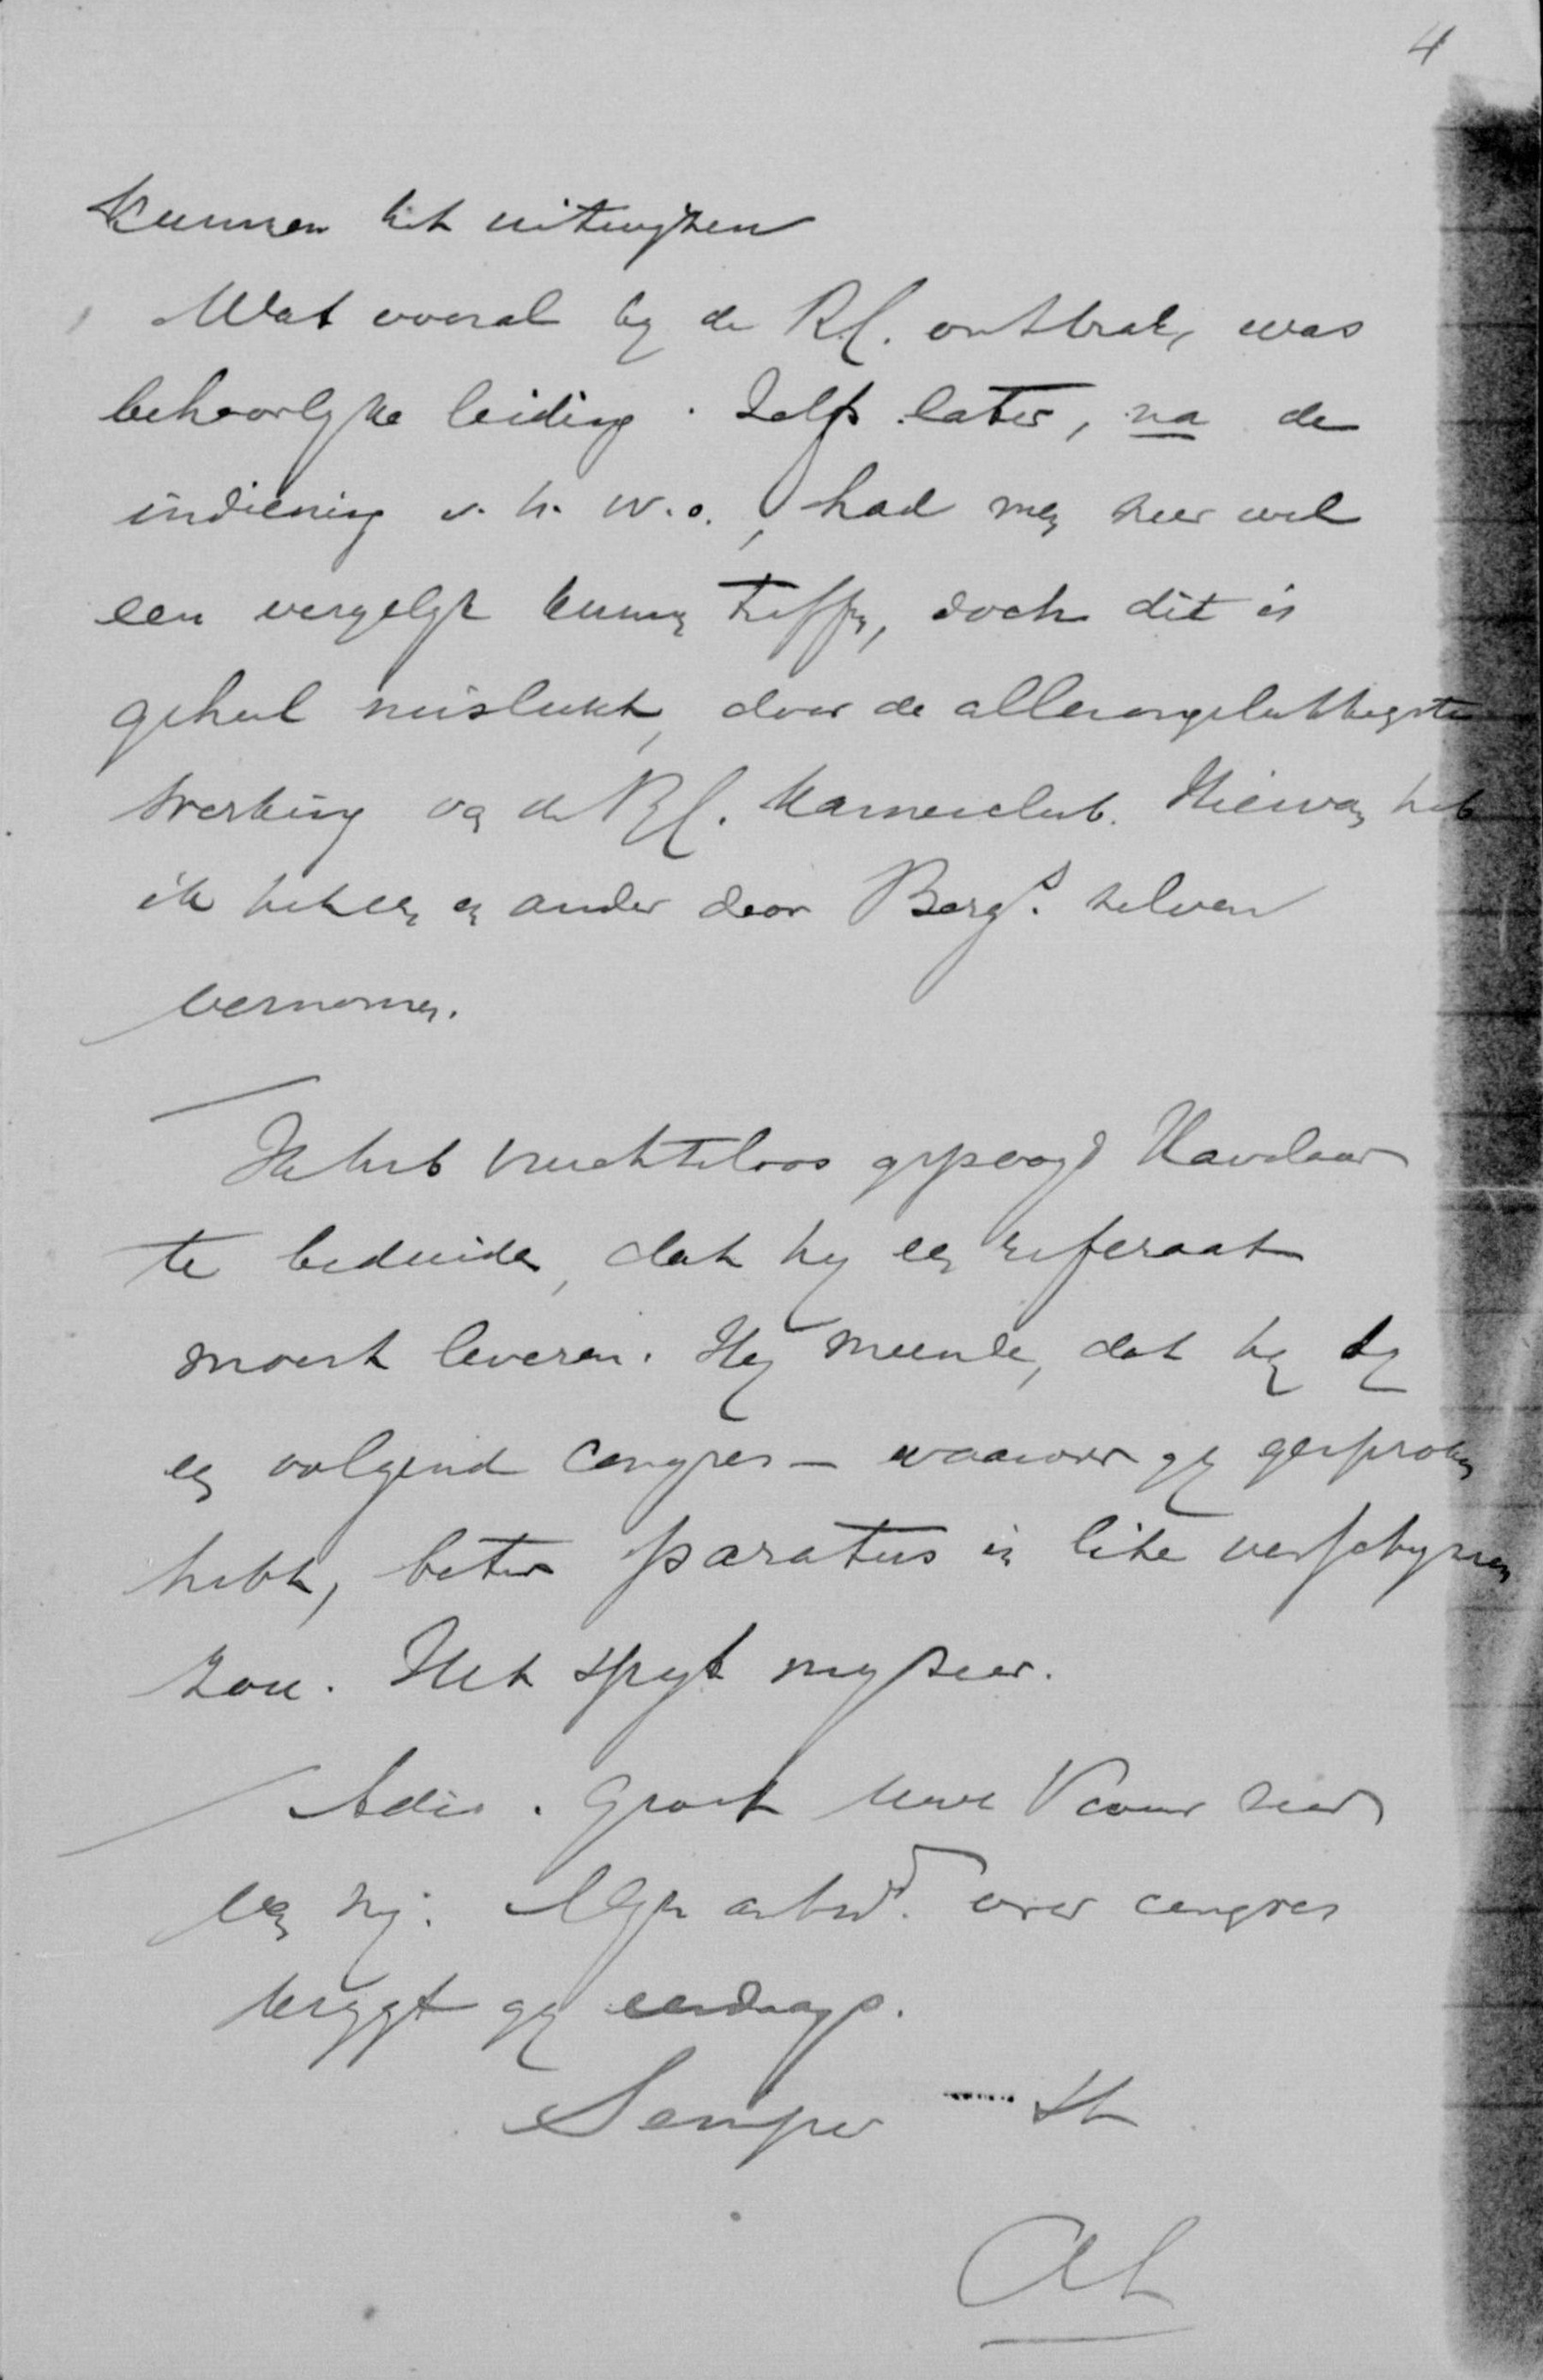 4
kunnen het uitwyken
Wat vooral by de R.C. ontbrak, was
behoorlyke leiding. Zelfs later, na de
indiening v. h. w.o., had men zeer wel
een vergelyk kunnen treffen, doch dit is
geheel mislukt, door de allerongelukkigste
werking van de R.C. Kamerclub. Hiervan heb
ik het een en ander door Berg.s zelven
vernomen.
Ik heb vruchteloos gepoogd Havelaar
te beduiden, dat hy een referaat
moest leveren. Hy meende, dat hy by
een volgend congres — waarover gy gesproken
hebt, beter paratus in lite verschynen
zou. Het spyt my zeer.
Adio. Groet uwe Vrouw zeer
van my. Myn antw.d over congres
krygt gy eerdaags.
Semper tt
AL